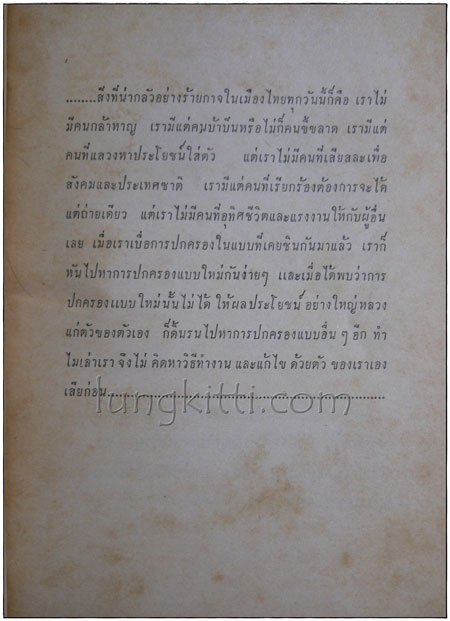 ........สิ่งที่น่ากลัวอย่างร้ายกาจในเมืองไทยทุกวันนี้ก็คือ เราไม่
มีคนกล้าหาญ เรามีแต่คนบ้าบิ่นหรือไม่ก็คนขี้ขลาด เรามีแต่
คนที่แสวงหาประโยชน์ใส่ตัว แต่เราไม่มีคนที่เสียสละเพื่อ
สังคมและประเทศชาติ เรามีแต่คนที่เรียกร้องต้องการจะได้
แต่ถ่ายเดียว แต่เราไม่มีคนที่อุทิศชีวิตและแรงงานให้กับผู้อื่น
เลย เมื่อเราเบื่อการปกครองในแบบที่เคยชินกันมาแล้ว เราก็
หันไปหาการปกครองแบบใหม่กันง่ายๆ และเมื่อได้พบว่าการ
ปกครองแบบใหม่นั้นไม่ได้ ให้ผลประโยชน์ อย่างใหญ่หลวง
แก่ตัวของตัวเอง ก็ดิ้นรนไปหาการปกครองแบบอื่น ๆ อีก ทำ
ไมเล่าเรา จึงไม่ คิดหาวิธีทำงาน และแก้ไข ด้วยตัว ของเราเอง
เสียก่อน................................................
lungkitti.com